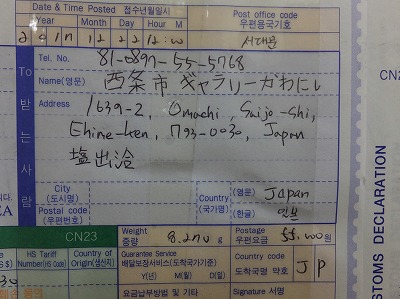 Date & Time Posted 접수년월일시
Post office code
우편용국기호
Year Month Day Hour
12 22 12:00
서대문
Tel. No. 81-0897-55-5768
Name(영문) 西条市 ギャラリーかわにし
To 받는사람
Address 1639-2, Omachi, Saijo-shi,
Ehime-ken, 793-0030, Japan
City
(도시명)
Postal code
(우편번호)
Country
(국가명)
(영문) Japan
(한글) 일본
CN23
Weight
중량
8.2
g
Postage
우편요금
55,000원
HS Tariff
Number(HS Code)
Country of
Origin(생산지)
Guarantee Service
배달보장서비스(도착국가기준)
Y(년) M(월) D(일)
Country code
도착국명 약호 JP
요금납부방법 및 기타
Signature 서명
CN2
STOMS DECLARATION